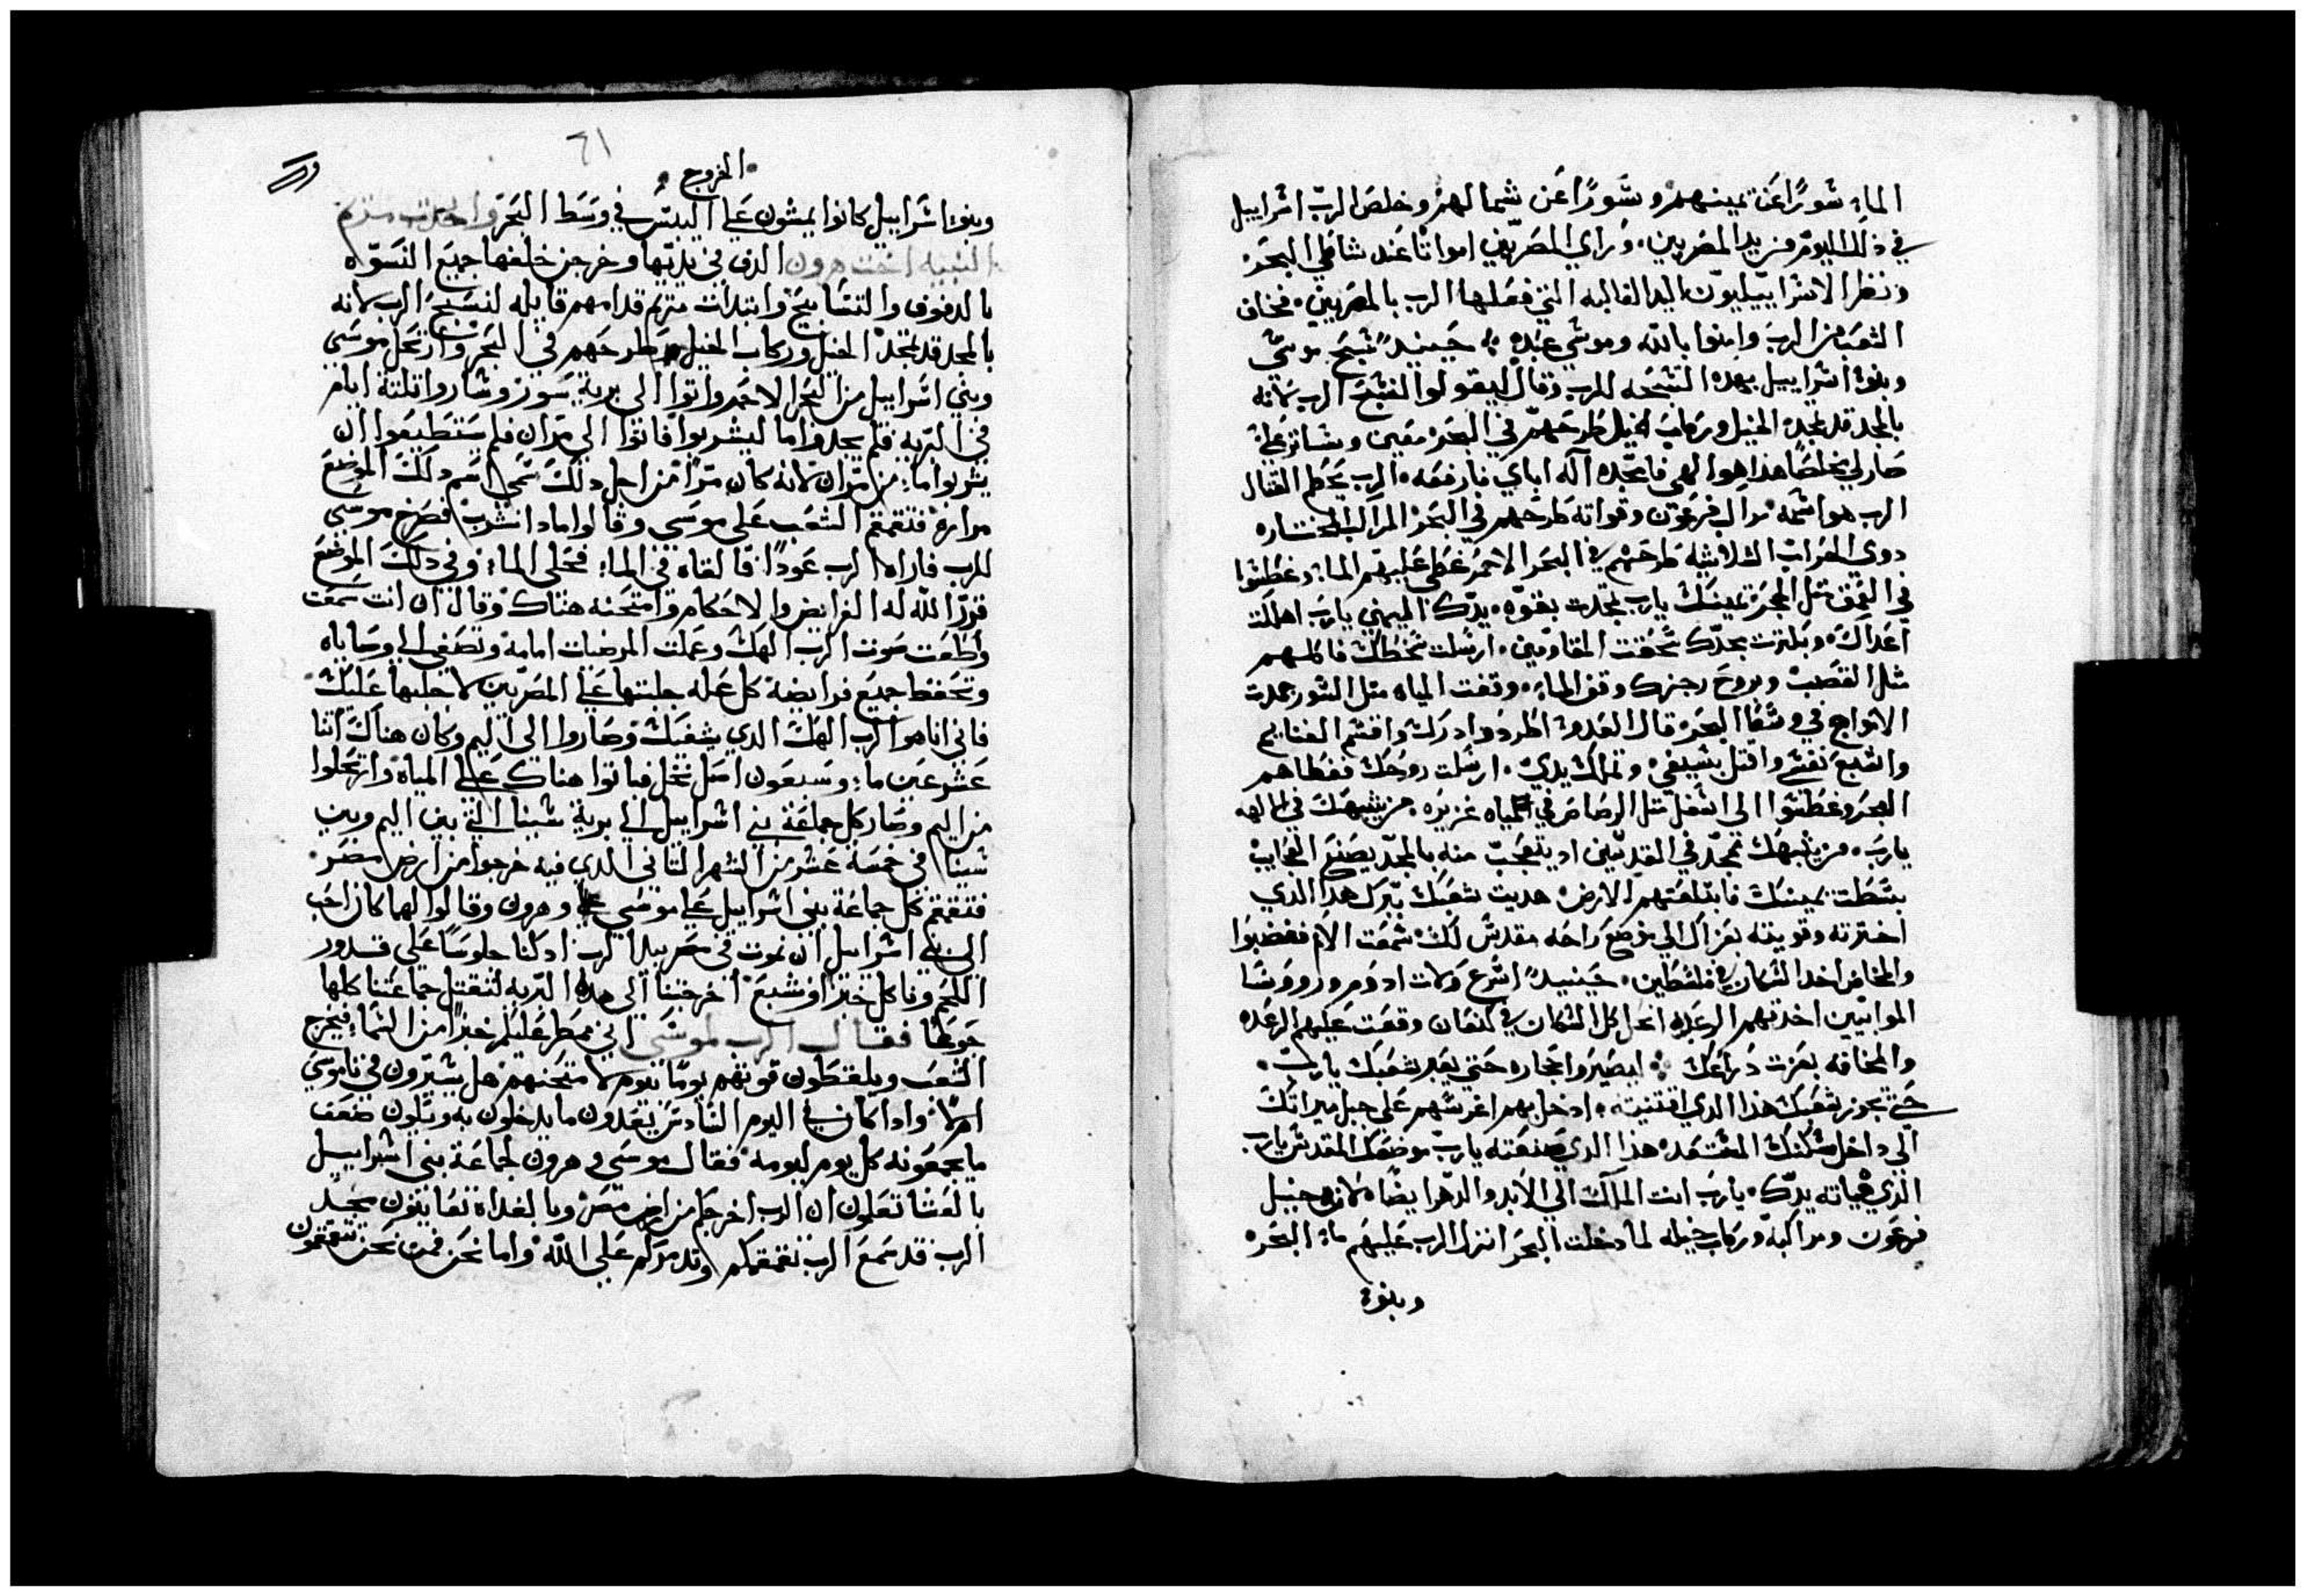 الماء سورًا عن يمينهم وسورًا عن شمالهم وخلص الرب اسراييل
في ذلك اليوم من يد المصريين وراي المصريين امواتًا عند شاطي البحر
ونظر الاسراييليون اليد الغالبه التي فعلها الرب بالمصريين فخاف
الشعب من الرب وامنوا بالله وموسي عبده حينيدٍ سبح موسي
وبنوا اسراييل بهده التسبحه للرب وقال ليقولوا لنسبح الرب لانه
بالمجد قد تمجد الخيل وركاب الخيل طرحهم في البحر معين وساتر علي
صار لي مخلصًا هدا هوا الهي فامجده اله اباي فارفعه الرب يحطم القتال
الرب هو اسمه مراكب فرعون وقواته طرحهم في البحر المراكب المختاره
دوي المراتب الثلاثيه طرحهم في البحر الاحمر غطي عليهم الماء وغطسوا
في العمق مثل الحجر يمينك يارب تمجدت بقوه يدك اليمني يارب اهلكت
اعداك وبكثرت مجدك سحقت المقاومين ارسلت سخطك فاكلهم
مثل القصب وبروح رجزك وقف الماء وقفت المياه مثل السور جمدت
الامواج في وسط البحر قال العدو اطرد وادرك واقسم الغنايم
واشبع نفسي واقتل بسيفي وتملك يدي ارسلت روحك فغطاهم
البحر وغطسوا الي اسفل مثل الرصاص في المياه غزيره من يشبهك في الالهه
يارب من يشبهك تمجد في القديسين اد يتعجب منه بالمجد يصنع العجايب
بسطت يمينك فابتلعتهم الارض هديت شعبك ببرك هدا الدي
اخترته وقويته بعزاك الي موضع راحه مقدس لك سمعت الامم فغضبوا
والمخاض اخد السكان في فلسطين حينيدٍ اسرع ولات ادوم وروسا
الموابيين اخدتهم الرعده انحل كل السكان في كنعان وقعت عليهم الرعده
والمخافه بعزت دراعك ليصيروا حجاره حتي يعبر شعبك يارب
حتي يجوز شعبك هذا الدي اقتنيته ادخل بهم اغرسهم علي جبل ميراتك
الي داخل مسكنك المستعد هذا الدي صنعته يارب موضعك المقدس يارب
الذي هياته يدك يارب انت الملك الي الابد والدهر ايضًا لان خيل
فرعون ومراكبه وركاب خيله لما دخلت البحر انزل الرب عليهم ماء البحر
وبنوا
٦١
الخروج
وبنوا اسراييل كانوا يمشون علي اليبس في وسط البحر واخدت مريم
النبيه اخت هرون الدف في يديها وخرجن خلفها جميع النسوه
بالدفوف والتسابيح وابتدات مريم قدامهم قايله لنسبح الرب لانه
بالمجد قد تمجد الخيل وركاب الخيل طرحهم في البحر وارتحل موسي
وبني اسراييل من البحر الاحمر واتوا الي برية سور وساروا ثلثة ايام
في البريه فلم يجدوا ما ليشربوا فاتوا الي مران فلم يستطيعوا ان
يشربوا ماء من مران لانه كان مرًا من اجل دلك سمي اسم دلك الموضع
مراره فتقمقم الشعب علي موسي وقالوا مادا نشرب فصرخ موسي
للرب فاراه الرب عودًا فالقاه في الماء فحلي الماء وفي دلك الموضع
قرر الله له الفرايض والاحكام وامتحنه هناك وقال ان انت سمعت
واطعت صوت الرب الهك وعملت المرضيات امامه وتصغي الي وصاياه
وتحفظ جميع فرايضه كل عله جلبتها علي المصريين لا اجلبها عليك
فاني انا هو الرب الهك الدي يشفيك وصاروا الي اليم وكان هناك اثنا
عشر عين ماء وسبعون اصل نخل فباتوا هناك علي المياه وارتحلوا
من اليم وصار كل جماعة بني اسراييل الي برية سينا التي بين اليم وبين
سينا في خمسة عشر من الشهر الثاني الدي فيه خرجوا من ارض مصر
فتقمقم كل جماعة بني اسراييل علي موسي وهرون وقالوا لهما كان احب
الي بني اسراييل ان نموت في مصر بيد الرب اد كنا جلوسًا علي قدور
اللحم وناكل خبز او شبع اخرجتنا الي هده البريه لتقتل جماعتنا كلها
جوعًا فقال الرب لموسي اني ممطر عليكم خبزًا من السماء فيخرج
الشعب ويلقطون قوتهم يومًا بيوم لامتحنهم هل يسيرون في ناموسي
ام لا وادا كان في اليوم السادس يعدون ما يدخلون به ويكون ضعف
ما يجمعونه كل يوم ليومه فقال موسي وهرون لجماعة بني اسراييل
بالعشا تعلمون ان الرب اخرجكم من ارض مصر وبالغداه تعاينون مجد
الرب قد سمع الرب تقمقمكم وتدمركم علي الله واما نحن فمن نحن تتقمقمون